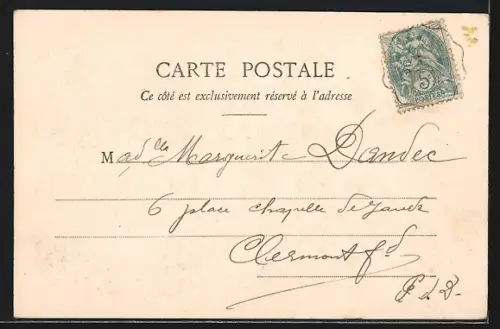 CARTE POSTALE
Ce côté est exclusivement réservé à l'adresse
Mad^lle Marguerite Dandec
6 place chapelle de Jaude
Clermont Fd
P. d D.
5
POSTES